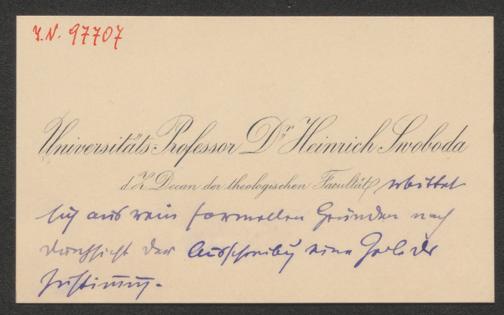 I.N. 97707
Universitäts-Professor Dr Heinrich Swoboda
d. Z. Decan der theologischen Facultät, erbittet
sich aus rein formellen Gründen nach
Durchsicht der Ausschreibg eine Zeile der
Zustimmg.